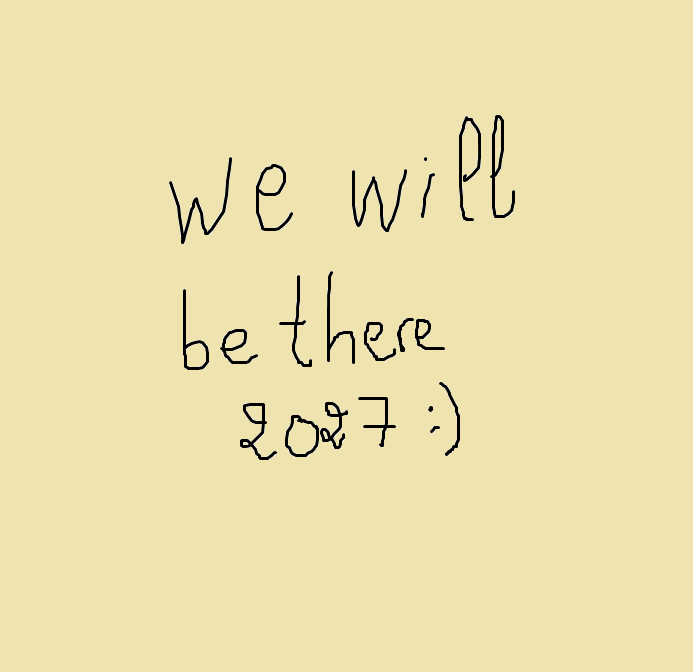 we will
be there
2027 :)